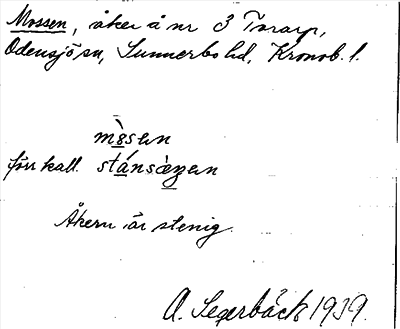 Mossen, åker å nr 3 Torarp,
Odensjö sn, Sunnerbo hd, Kronob. l.
mòsen
förr kall. stánsæŋen
Åkern är stenig.
A. Segerbäck 1939.